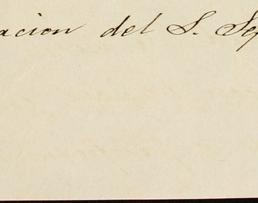 acion del S. Sep